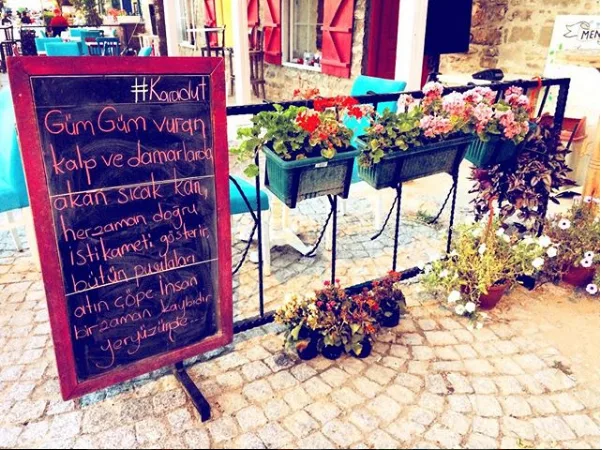 #Karadut
Güm Güm vuran
kalp ve damarlarda
akan sıcak kan,
herzaman doğru
istikameti gösterir,
bütün pusulaları
atın çöpe insan
bir zaman kaybıdır
yeryüzünde...
MEN